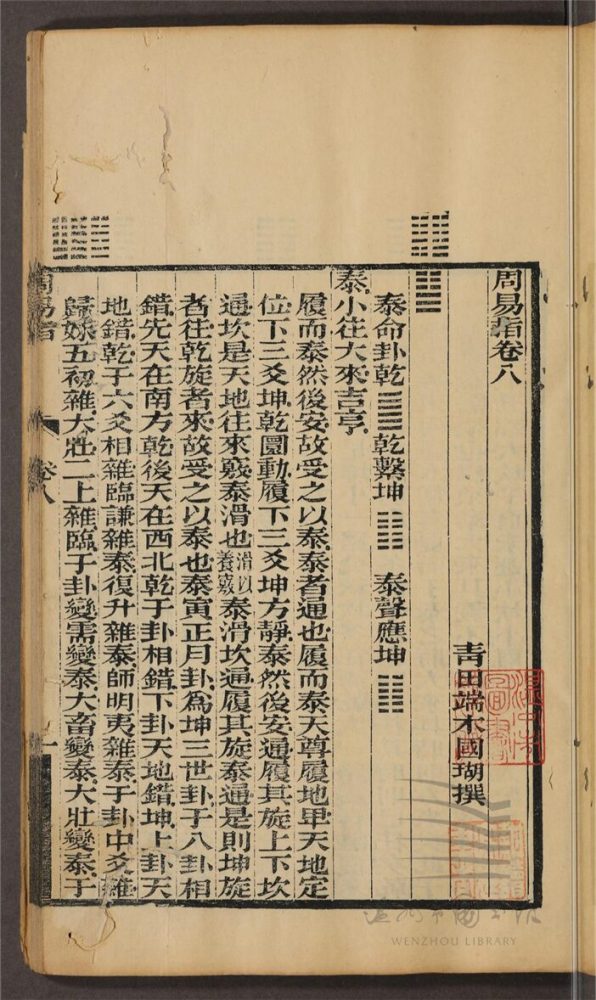 周易指卷八
青田端木國瑚撰
泰命卦乾䷀乾繫坤䷁泰聲應坤䷁
泰小往大來吉亨
履而泰然後安故受之以泰泰者通也履而泰天尊履地卑天地定
位下三爻坤乾圜動履下三爻坤方靜泰然後安通履其旋上下坎
通坎是天地往來竅泰滑也滑以養竅泰滑坎通履其旋泰通是則坤旋
者往乾旋者來故受之以泰也泰寅正月卦為坤三世卦于八卦相
錯先天在南方乾後天在西北乾于卦相錯下卦天地錯坤上卦天
地錯乾于六爻相雜臨謙雜泰復升雜泰師明夷雜泰于卦中爻雜
歸妹五初雜大壯二上雜臨于卦變需變泰大畜變泰大壯變泰于
周易指
卷八
一
WENZHOU LIBRARY